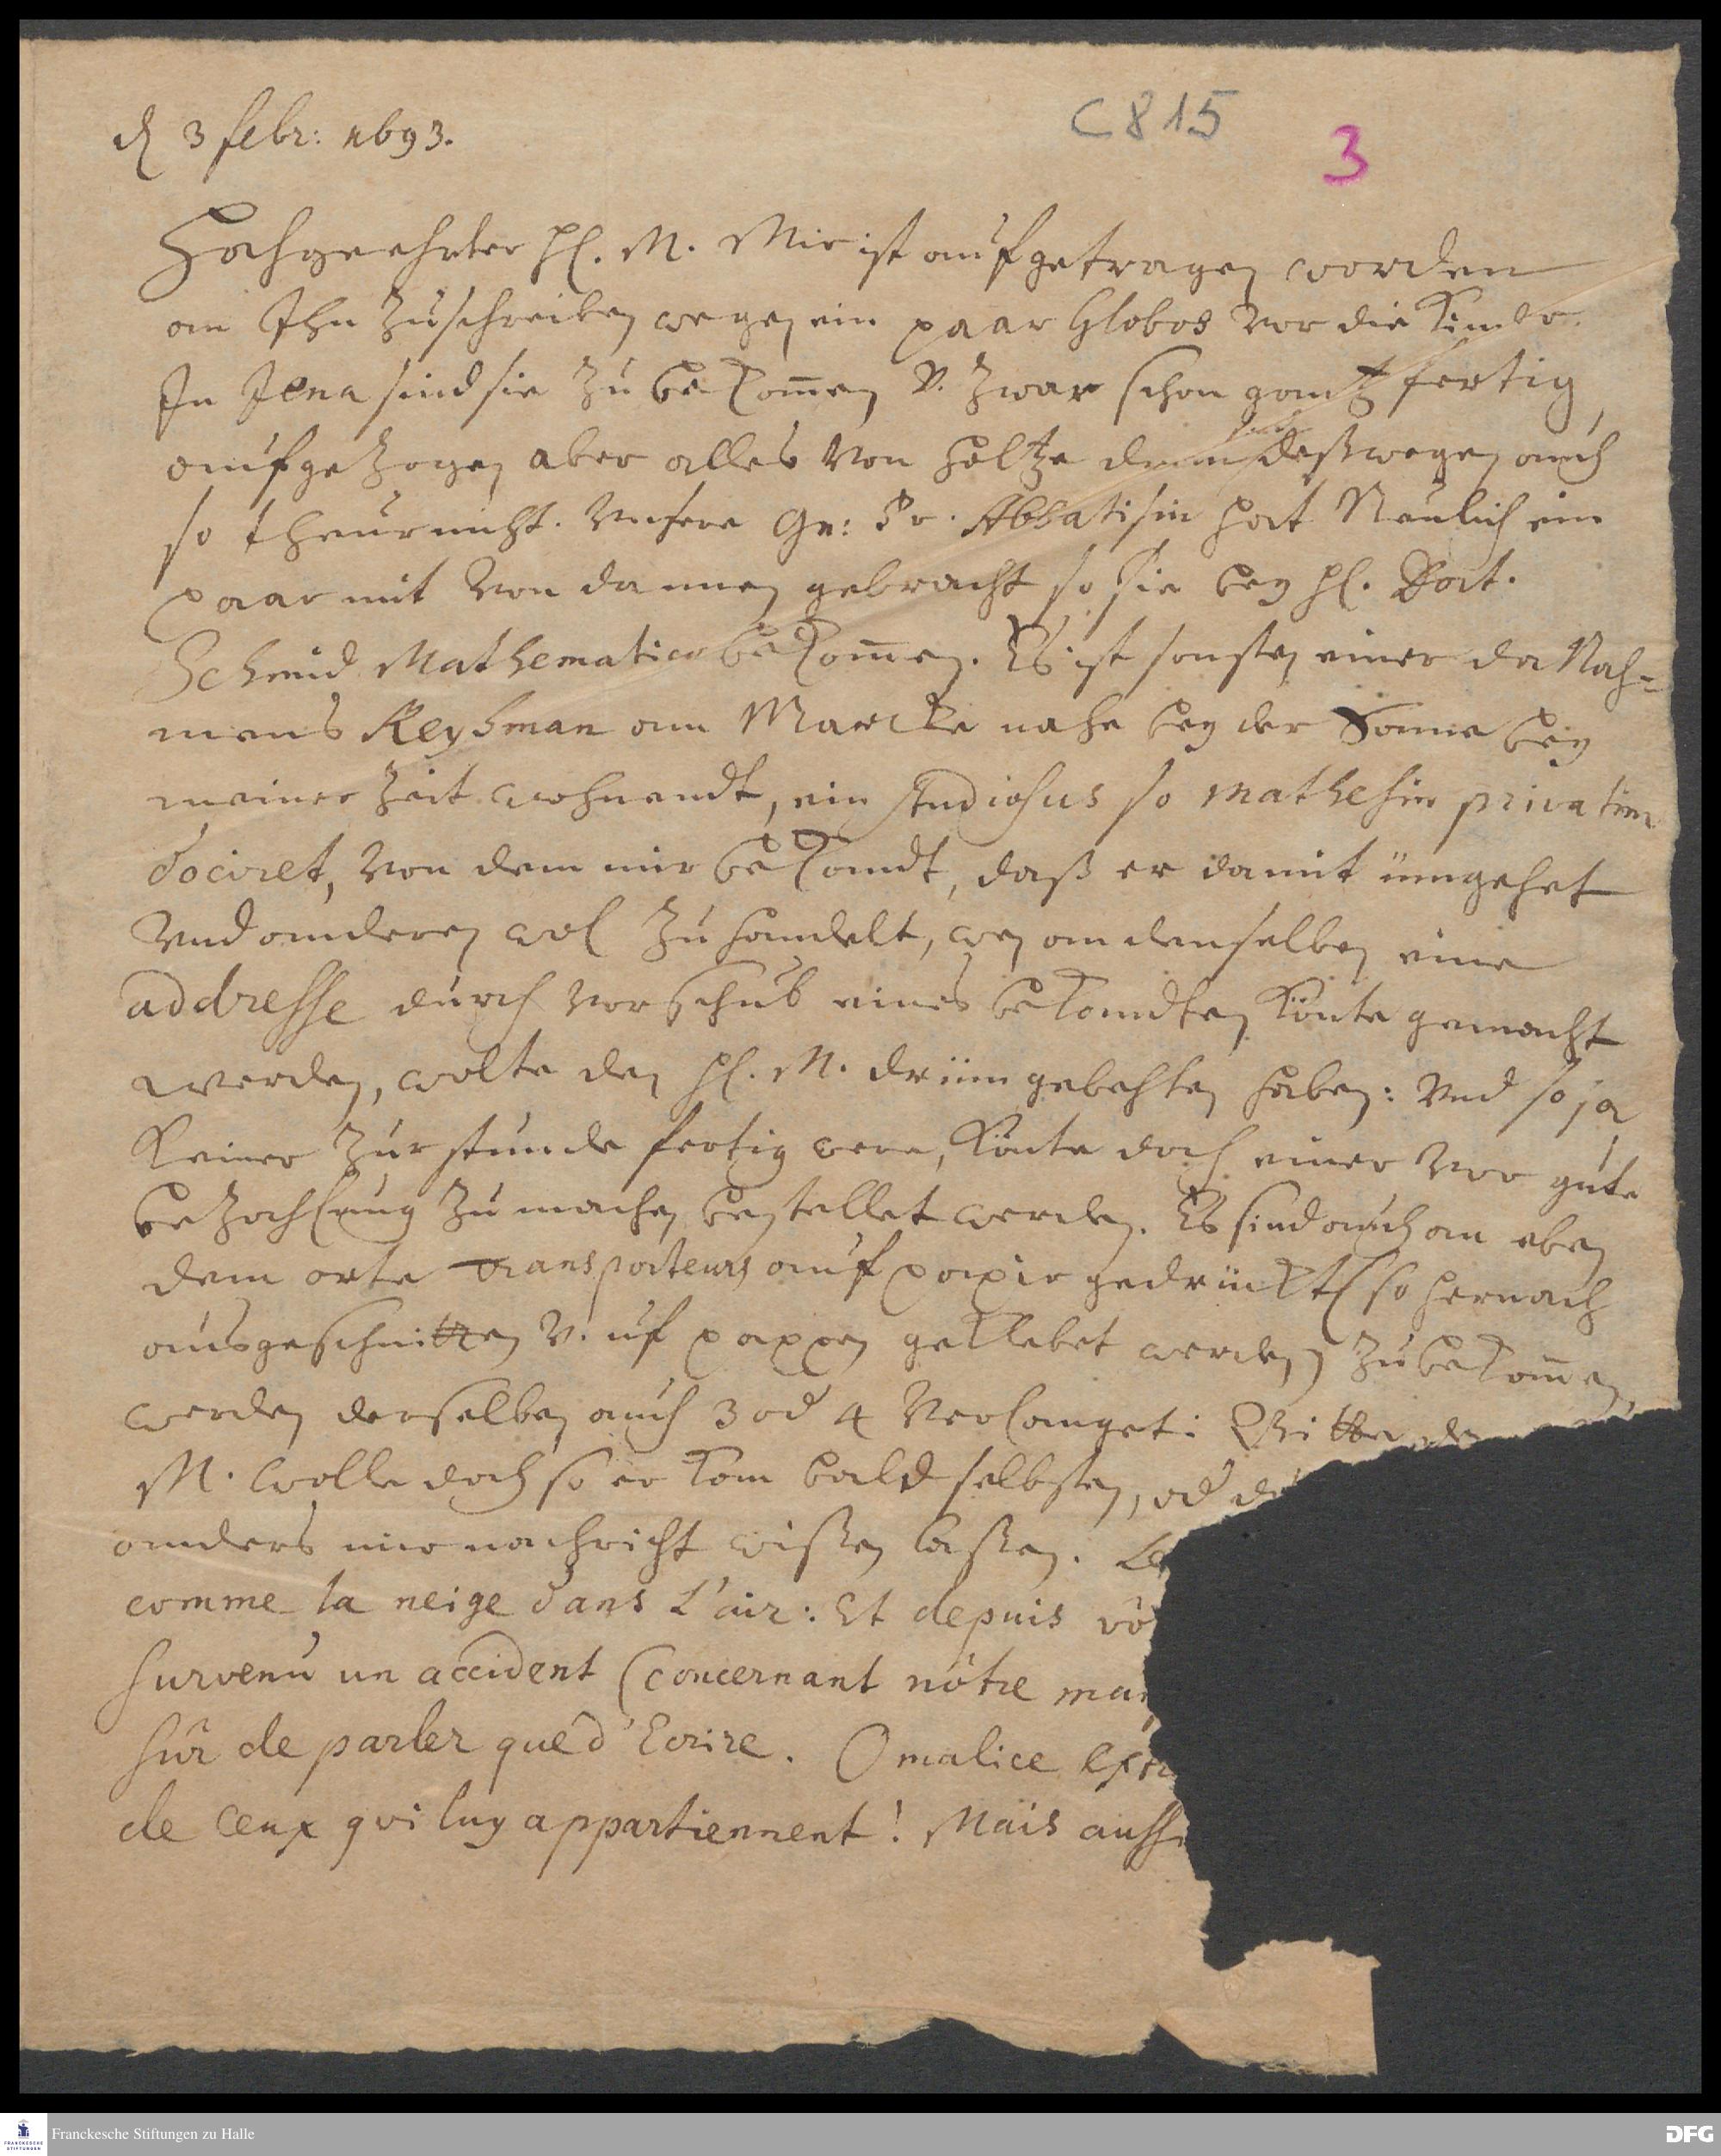 d 3 febr: 1693.
C 815
3
Hochgeehrter H. M. Mir ist aufgetragen worden
an Ihn zuschreiben wegen ein paar Globos vor die Kinder.
In Jena sind sie zu bekom̅en v. zwar schon gantz fertig
aufgezogen aber alles von holtze deßwegen auch
so theur nicht. Unsere Gn: Fr. Abbatisin hat Neulich ein
paar mit von dannen gebracht so sie bey H. Doct.
Schmid Mathematico bekom̅en. Es ist sonsten einer da Nah-
mens Reyhman am Marckte nahe bey der Sonne bey
meiner Zeit wohnendt, ein studiosus so mathesin privatim
dociret, von dem mir bekandt, daß er damit ümgehet
Und anderen wol zu handelt, wen an denselben eine
addresse durch vorschub eines bekandten könte gemacht
werden, wolte den H. M. drüm gebehten haben: Und so ja
keiner zur stunde fertig were, könte doch einer vor gute
bezahlung zu machen bestellet werden. Es sind auch an eben
dem orte transporteurs auf papir gedrückt (so hernach
ausgeschnitten v. uf pappen geklebet werden) zu bekom̅en,
werden derselben auch 3 od 4 verlanget: Bitte
M. wolle doch so er kan bald selbsten, od
anders mir nachricht wißen laßen.
comme la neige dans l'air: Et depuis vô
survenu un accident (concernant nôtre mar
sûr de parler que d'Ecrire. O malice extr
de ceux qvi luy appartiennent! Mais aussi
Franckesche Stiftungen zu Halle
DFG